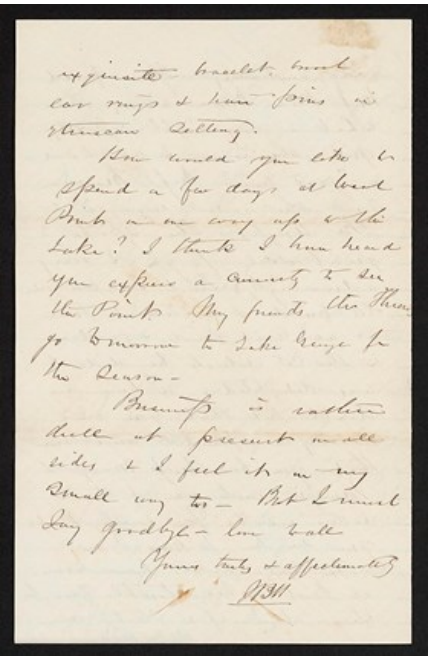 exquisite bracelet. breast
ear rings & hair pins in
Etruscan setting.
How would you like to
spend a few days at West
Point on our way up to the
Lake? I think I have heard
you express a curiosity to see
the Point. My friends the
go tomorrow to Lake George for
the season -
Business is rather
dull at present on all
sides & I feel it in my
small way too - But I must
say goodbye - love to all
Yours truly & affectionately